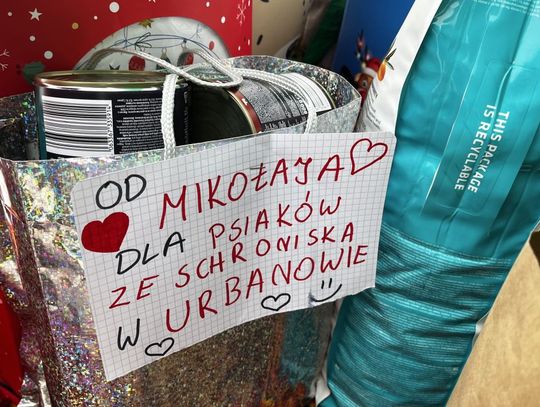 OD
MIKOŁAJA
DLA PSIAKÓW
ZE SCHRONISKA
W URBANOWIE
THIS PACKAGE
IS RECYCLABLE